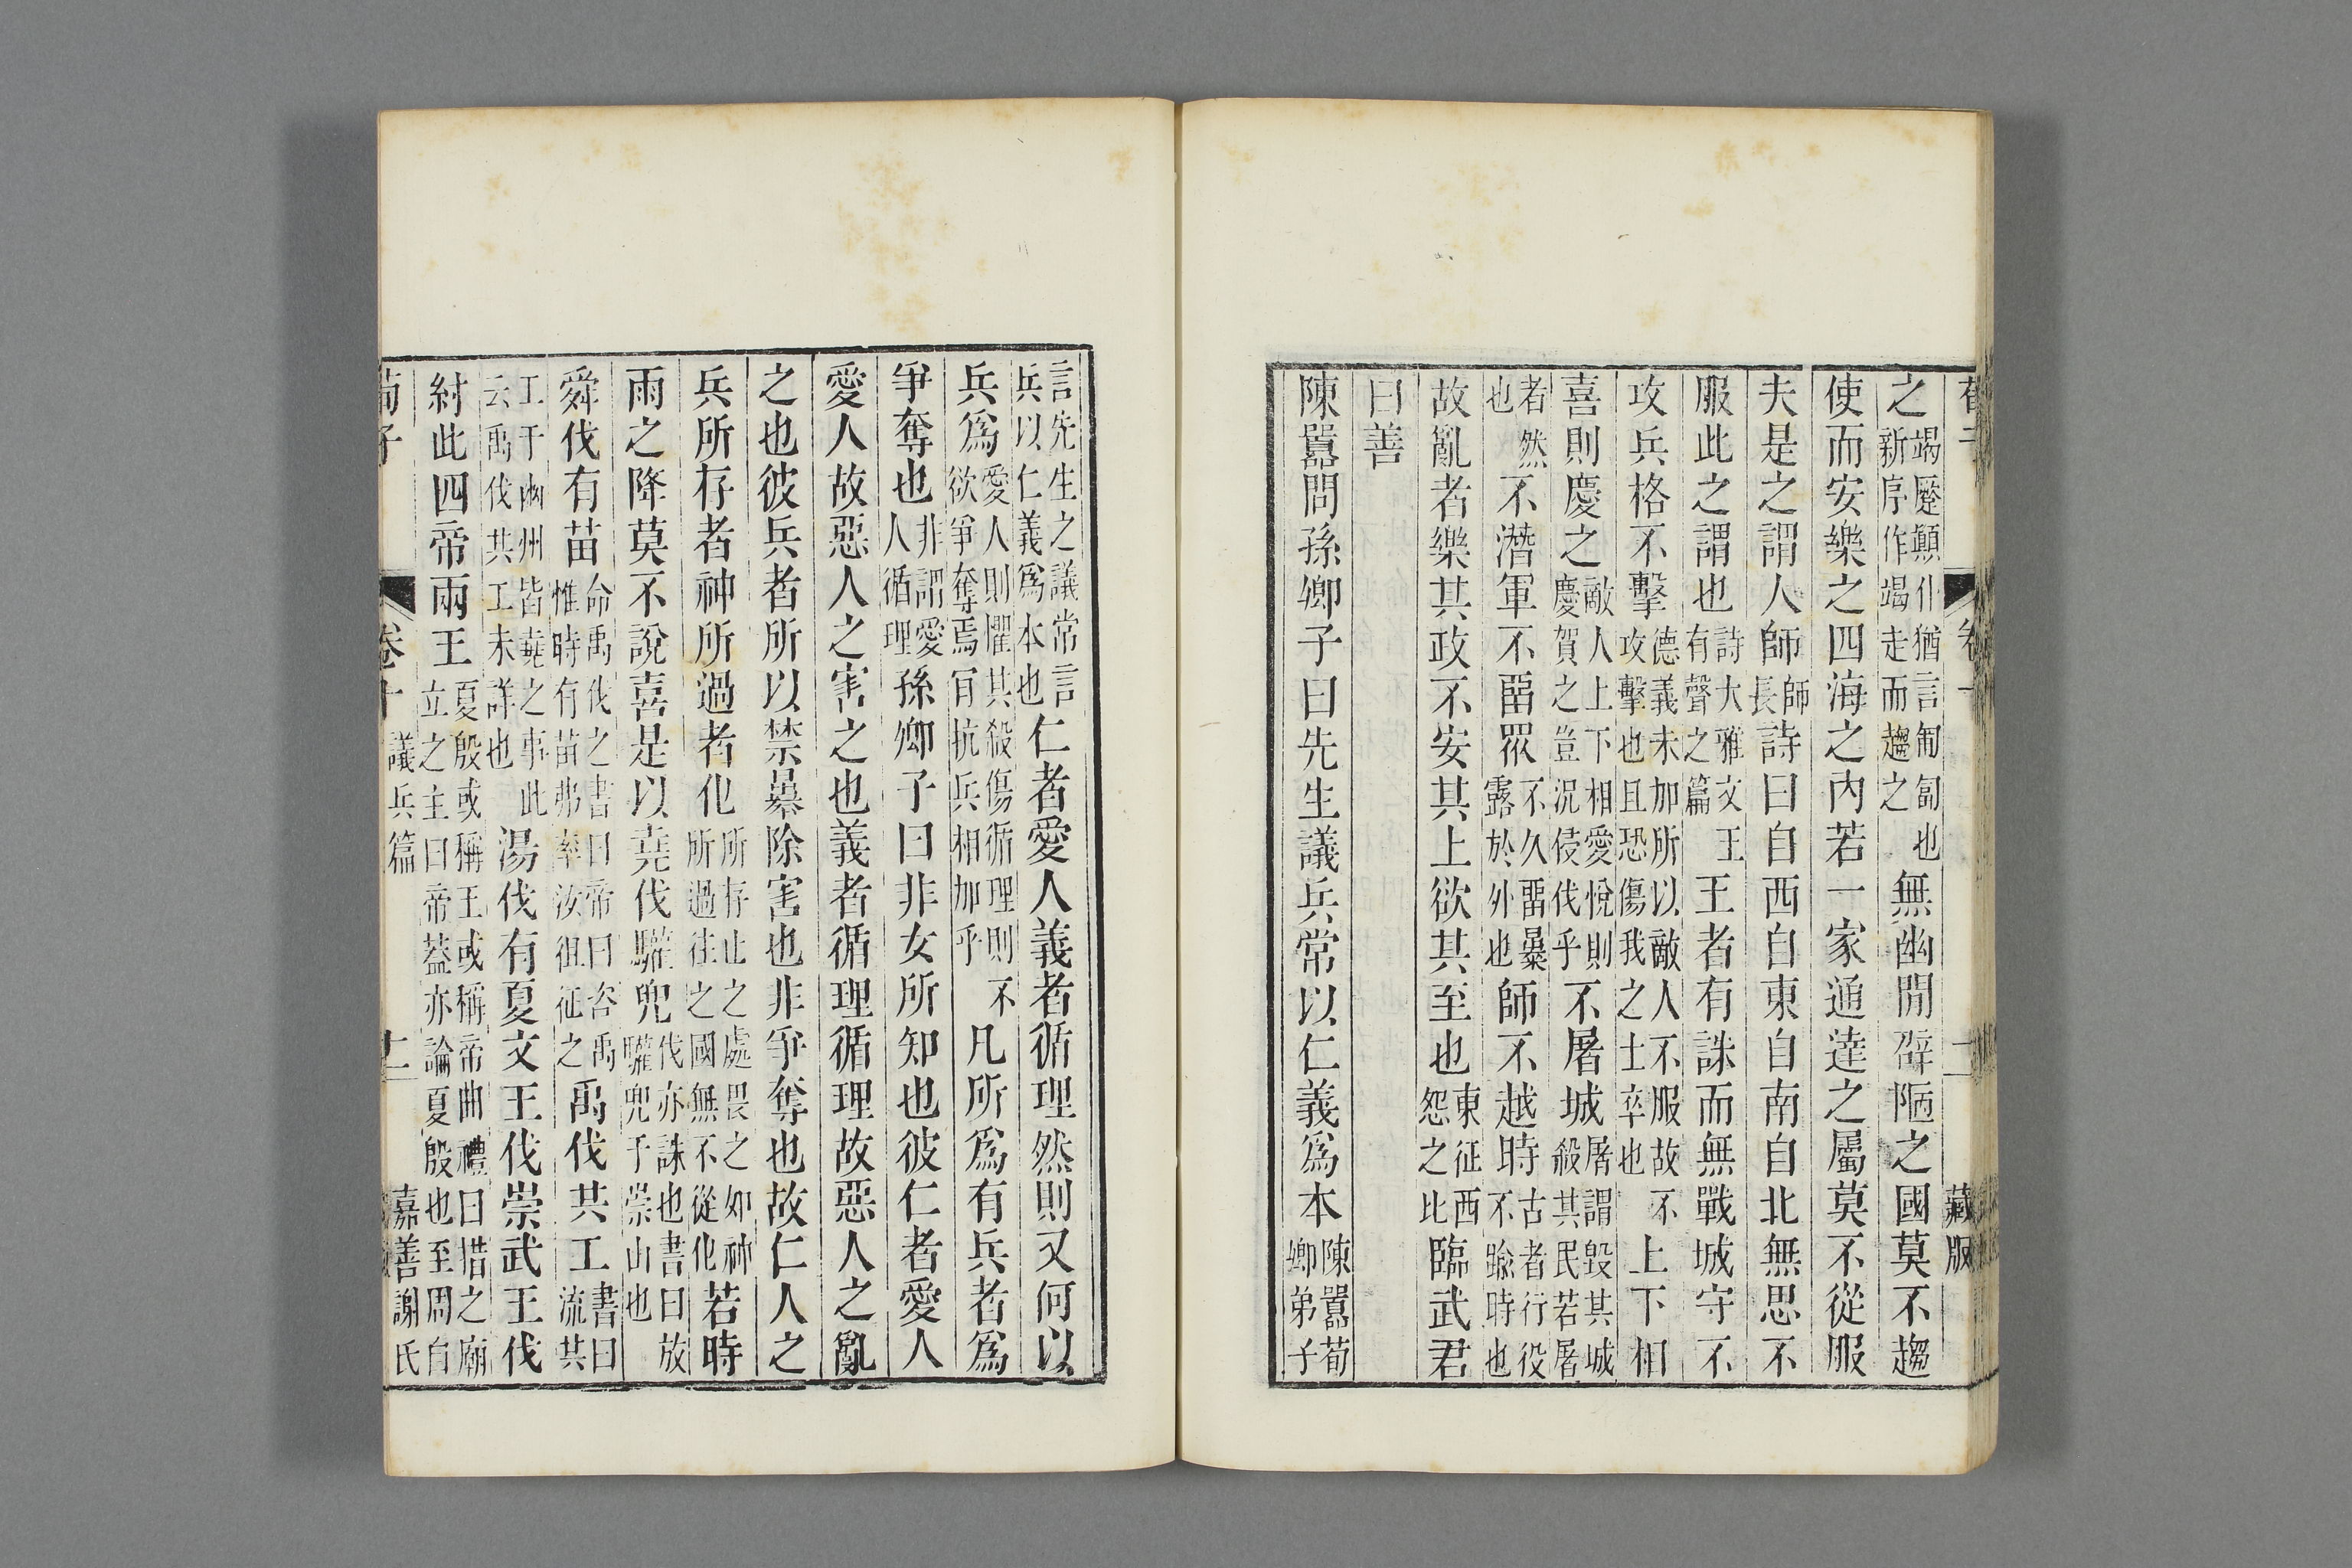 之竭蹷顛仆猶言匍匐也新序作竭走而趨之無幽閒辟陋之國莫不趨
使而安樂之四海之內若一家通達之屬莫不從服
夫是之謂人師師長詩曰自西自東自南自北無思不
服此之謂也詩大雅文王有聲之篇王者有誅而無戰城守不
攻兵格不擊德義未加所以敵人不服故不攻擊也且恐傷我之士卒也上下相
喜則慶之敵人上下相愛悅則慶賀之豈況侵伐乎不屠城屠謂毀其城殺其民若屠
者然也不潛軍不畱眾不久畱暴露於外也師不越時古者行役不踰時也
故亂者樂其政不安其上欲其至也東征西怨之比臨武君
曰善
陳囂問孫卿子曰先生議兵常以仁義爲本陳囂荀卿弟子
言先生之議常言兵以仁義爲本也仁者愛人義者循理然則又何以
兵爲愛人則懼其殺傷循理則不欲爭奪焉肎抗兵相加乎凡所爲有兵者爲
爭奪也非謂愛人循理孫卿子曰非女所知也彼仁者愛人
愛人故惡人之害之也義者循理循理故惡人之亂
之也彼兵者所以禁暴除害也非爭奪也故仁人之
兵所存者神所過者化所存止之處畏之如神所過往之國無不從化若時
雨之降莫不說喜是以堯伐驩兜伐亦誅也書曰放驩兜于崇山也
舜伐有苗命禹伐之書曰帝曰咨禹惟時有苗弗率汝徂征之禹伐共工書曰流共
工于幽州皆堯之事此云禹伐共工未詳也湯伐有夏文王伐崇武王伐
紂此四帝兩王夏殷或稱王或稱帝曲禮曰措之廟立之主曰帝葢亦論夏殷也至周自
荀子 卷十 議兵篇 十二 嘉善謝氏
藏版